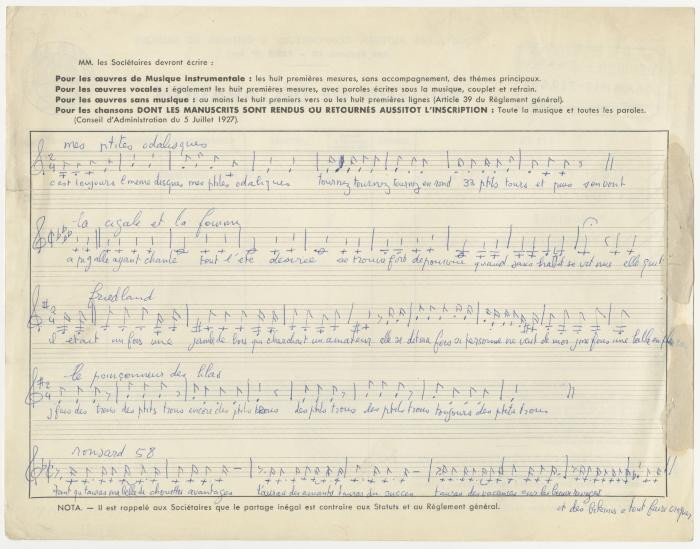 MM. les Sociétaires devront écrire :
Pour les œuvres de Musique instrumentale : les huit premières mesures, sans accompagnement, des thèmes principaux.
Pour les œuvres vocales : également les huit premières mesures, avec paroles écrites sous la musique, couplet et refrain.
Pour les œuvres sans musique : au moins les huit premiers vers ou les huit premières lignes (Article 39 du Règlement général).
Pour les chansons DONT LES MANUSCRITS SONT RENDUS OU RETOURNÉS AUSSITOT L'INSCRIPTION : Toute la musique et toutes les paroles.
(Conseil d'Administration du 5 Juillet 1927).
mes ptites odalisques
c'est toujours l'meme disque mes ptites odalisques tournez tournez tournez en rond 33 ptits tours et puis s'en vont
la cigale et la fourmi
ayant chanté tout l'été desirée se trouva fort depourvue quand sans
friedland
il etait un fois une jambe de bois qui cherchait un amateur elle se disait si personne ne veut de moi
le poinçonneur des lilas
j'fais des trous des ptits trous encore des ptits trous des ptits trous des ptits trous toujours des ptits trous
ronsard 58
tant qu't'auras ma belle de chouettes avantages t'auras des amants t'auras du succes t'auras des vacances sur les beaux
et des bitumes a tout faire craquer
NOTA. — Il est rappelé aux Sociétaires que le partage inégal est contraire aux Statuts et au Règlement général.